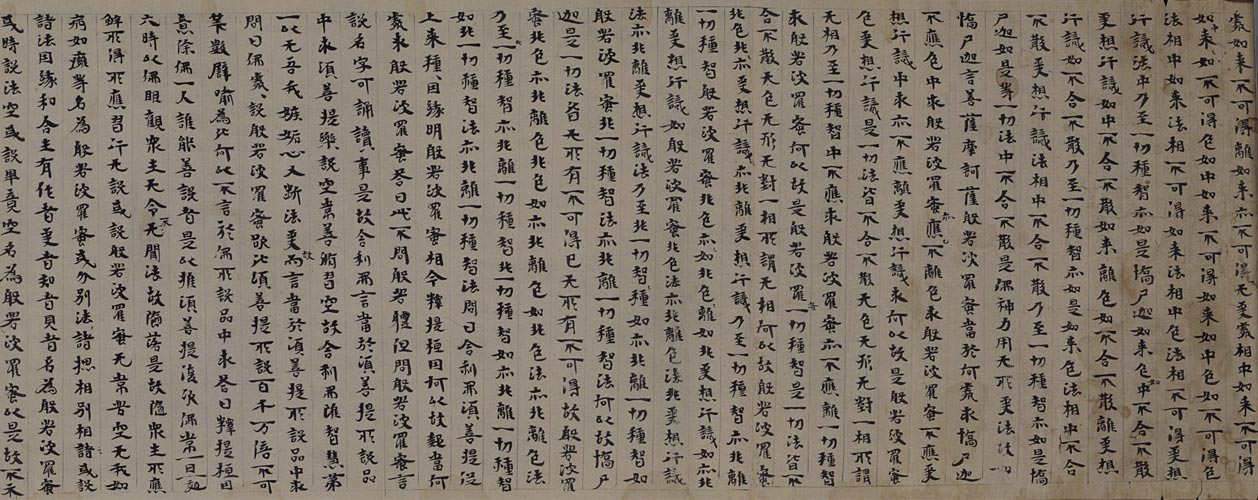 處如来不可得離如如来亦不可得无受處相中如来不可得
如来不可得色如中如来不可得如来如中色如不可得色
法相中如来法相不可得如来法相中色法相不可得受想
行識法中乃至一切種智亦如是憍尸迦如来色中不合不散
受想行識如中不合不散如来離色如不合不散離受想
行識如不合不散乃至一切種智亦如是如来色法相中不合
不散受想行識法相中不合不散乃至一切種智亦如是憍
尸迦如是等一切法中不合不散是佛神力用无所受法故如
憍尸迦言善薩摩訶薩般若波羅蜜當於何處求憍尸迦
不應色中求般若波羅蜜亦不應離色求般若波羅蜜不應受
想行識中求亦不應離受想行識求何以故是般若波羅蜜
色受想行識是一切法皆不合不散无色无形无對一相所謂
无相乃至一切種智中不應求般若波羅蜜亦不應離一切種智
求般若波羅蜜何以故是般若波羅蜜一切種智是一切法皆不
合不散无色无形无對一相所謂无相何以故般若波羅蜜非色亦
非離色非受想行識亦非離受想行識乃至一切種智亦非離
一切種智般若波羅蜜非色如亦非離色如非受想行識如亦非
離受想行識如般若波羅蜜非色法亦非離色法非受想行識
法亦非離受想行識法乃至非一切智種如亦非離一切種智如
般若波羅蜜非一切種智法亦非離一切種智法何以故憍尸
迦是一切法皆无所有不可得以无所有不可得故般若波羅
蜜非色亦非離色非色如亦非離色如非色法亦非離色法
乃至一切種智亦非離一切種智非一切種智如亦非離一切種智
如非一切種智法亦非離一切種智法問曰舍利弗須菩提從
上来種〻因緣明般若波羅蜜相今釋提桓因何以故起當何
處求般若波羅蜜荅曰此不問般若體但問般若波羅蜜言
説名字可誦讀事是故舍利弗言當於須菩提所説品
中求須菩提樂説空常善修習空故舍利弗雖智慧第
一以无吾我嫉妬心又断法愛故而言當於須菩提所説品中求
問曰佛處〻説般若波羅蜜欲比須菩提所説百千万億不可
筭數譬喻為比何以不言於佛所説品中求荅曰釋提桓因
意除佛一人誰能善説者是以推須菩提復次佛常一日一夜
六時以佛眼觀衆生无令不聞法故墮落是故隨衆生所應
解所得所應習行无説或説般若波羅蜜无常苦空无我如
病如癰等名為般若波羅蜜或分别法諸揔相别相諸或説
諸法因緣和合生有作者受者知者見者名為般若波羅蜜
或時説法空或説畢竟空名為般若波羅蜜以是故不